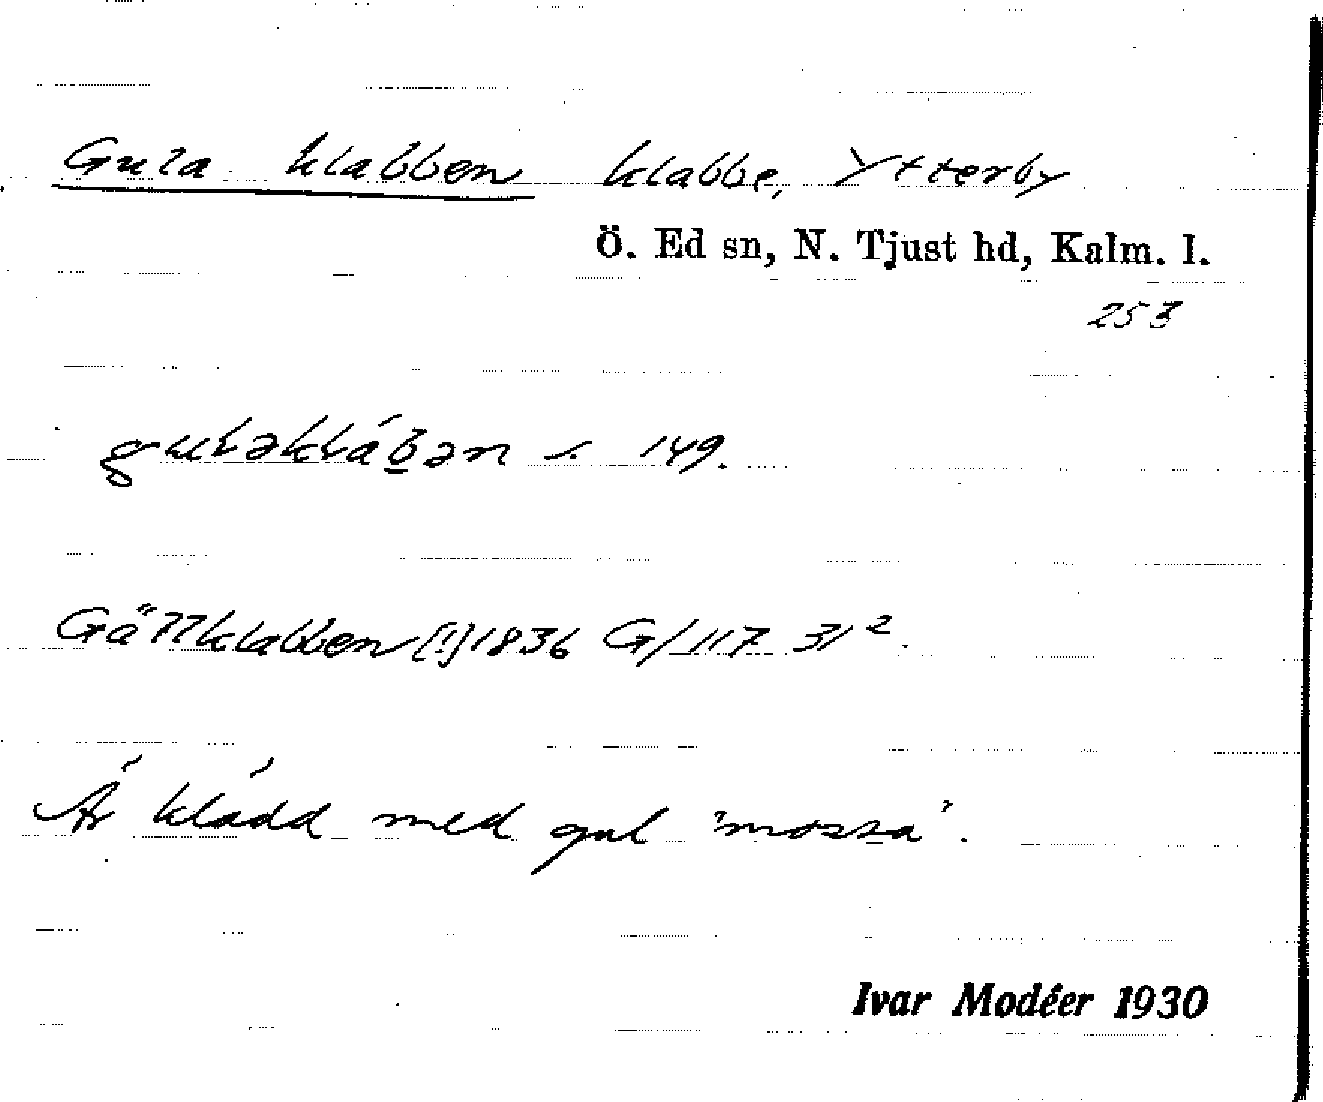 Gula klabben klabbe, Ytterby
Ö. Ed sn, N. Tjust hd, Kalm. l.
253
guləklábən s. 149.
Gällklabben [!] 1836 G/117 31²
Är klädd med gul "mossa".
Ivar Modéer 1930